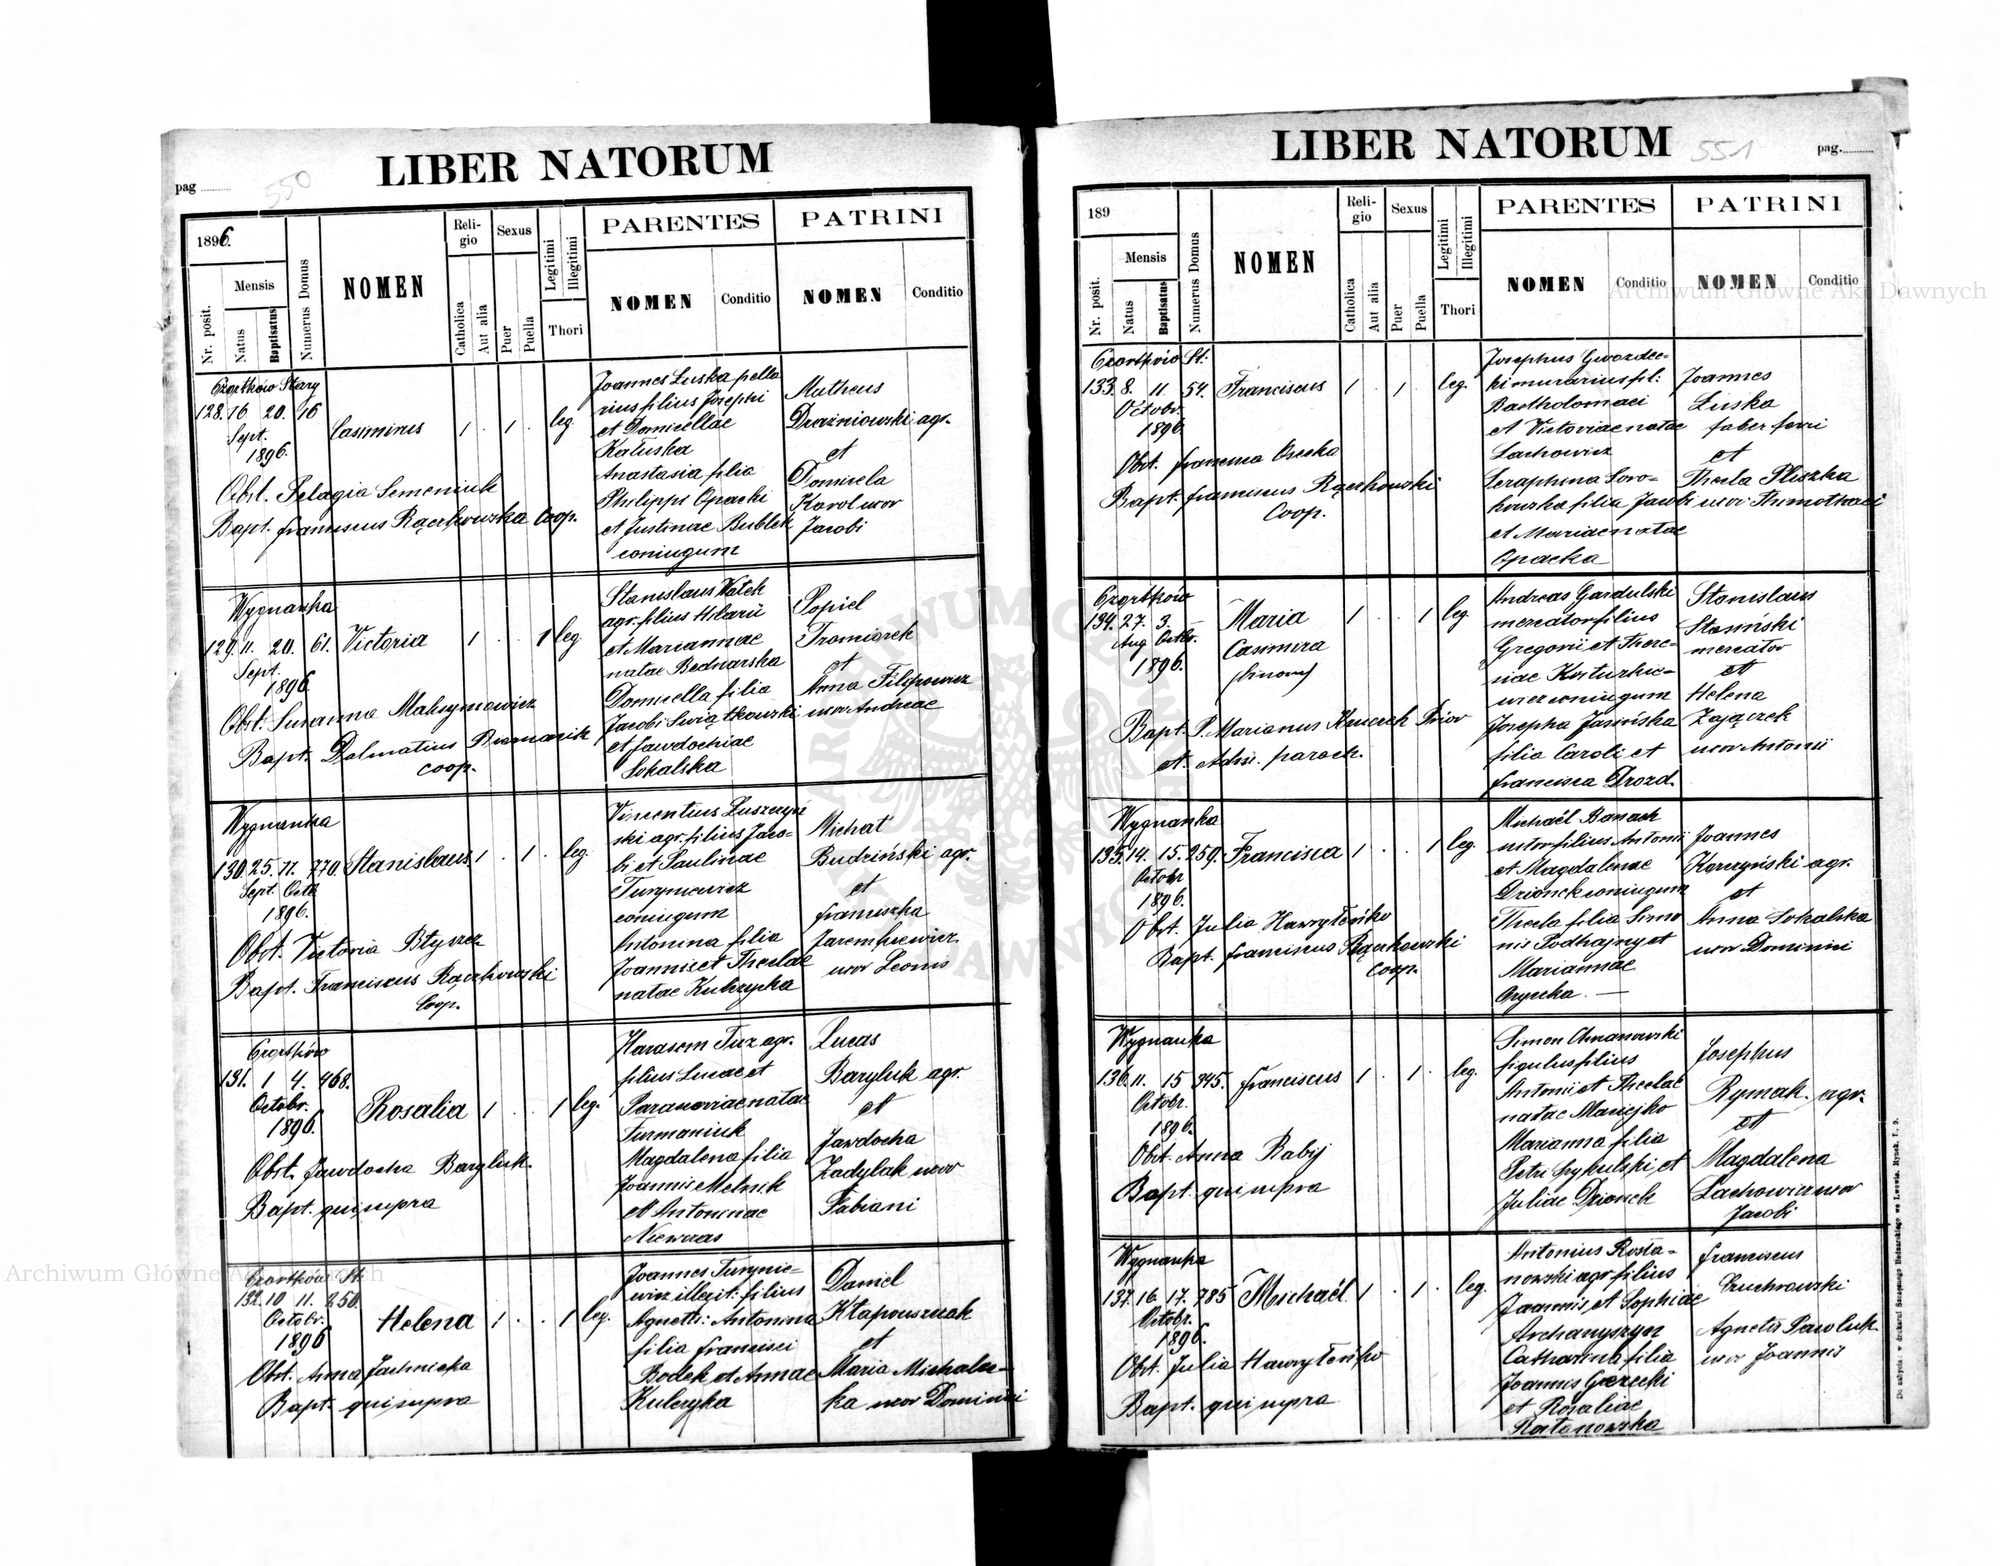 LIBER NATORUM
pag
550
1896.
Nr. posit.
Mensis
Natus
Baptisatus
Numerus Domus
NOMEN
Religio
Catholica
Aut alia
Sexus
Puer
Puella
Legitimi
Illegitimi
Thori
PARENTES
NOMEN
Conditio
PATRINI
NOMEN
Conditio
Czortków Stary
128. 16 20. 16
Sept.
1896.
Casimirus 1 . 1 . leg.
Joannes Łuska pella
rius filius Josephi
et Domicellae
Kałuska
Anastasia filia
Philippi Opacki
et Justinae Bublek
coniugum
Matheus
Drażniowski agr.
et
Domicela
Karol uxor
Jacobi
Obst. Pelagia Semeniuk
Bapt. Franciscus Rączkowski Coop.
Wygnanka
129. 11. 20. 61. Victoria 1 . . 1 leg.
Sept.
1896
Stanislaus Watek
agr. filius Hilarii
et Mariannae
natae Bednarska
Domicella filia
Jacobi Świątkowski
et Jawdochiae
Sokalska
Popiel
et
Anna Filipowicz
uxor Andreae
Obst. Susanna Maksymowicz
Bapt. Dalmatius
coop.
Wygnanka
130. 25. 11. 770. Stanislaus 1 . 1 . leg.
Sept. Octb.
1896.
Vincentius Łuszczyń
ski agr. filius Jaco-
bi et Paulinae
Turyniewicz
coniugum
Antonina filia
Joannis et Theclae
natae Kulczycka
Michał
Budziński agr.
et
Franciszka
Jaremkiewicz
uxor Leonis
Obst. Victoria Błyszcz
Bapt. Franciscus Rączkowski
Coop.
Czortków
131. 1 4. 468.
Octobr.
1896.
Rosalia 1 . . 1 leg.
Harasem Tuz agr.
filius Lucae et
Parasceviae natae
Furmaniuk
Magdalena filia
Joannis Melnik
et Antoninae
Niewczas
Lucas
Baryluk agr.
et
Jawdocha
Zadylak uxor
Fabiani
Obst. Jawdocha Baryluk.
Bapt. qui supra
Czortków St.
132. 10 11. 250.
Octobr.
1896
Helena 1 . . 1 leg.
Joannes Turynie-
wicz illegit. filius
Agnetis: Antonina
filia Francisci
Bodek et Annae
Kulczycka
Daniel
Kłapouszczak
et
Maria Michales-
ka uxor Dominici
Obst. Anna Jachnicka
Bapt. qui supra
LIBER NATORUM
551
pag.
189
Nr. posit.
Mensis
Natus
Baptisatus
Numerus Domus
NOMEN
Religio
Catholica
Aut alia
Sexus
Puer
Puella
Legitimi
Illegitimi
Thori
PARENTES
NOMEN
Conditio
PATRINI
NOMEN
Conditio
Czortków St.
133. 8. 11. 54. Franciscus 1 . 1 . leg.
Octobr.
1896.
Josephus Gwozdec-
ki murarius fil:
Bartholomaei
et Victoriae natae
Lachowicz
Seraphina Soro-
kowska filia Jacobi
et Mariae natae
Opacka
Joannes
Łuska
faber ferri
et
Thecla Pliszka
uxor Thimothaei
Obst. Francisca Osecka
Bapt. Franciscus Rączkowski
Coop.
Czortków
134. 27. 3.
Aug Octb.
1896.
Maria
Casimira
(binom)
1 . . 1 leg.
Andreas Gardulski
mercator filius
Gregorii et There-
siae
coniugum
Josepha Jasińska
filia Caroli et
Francisca Drozd.
Stanislaus
Stasiński
mercator
et
Helena
Zajączek
uxor Antonii
Bapt. P. Marianus Prior
et Admi. paroch.
Wygnanka
135. 14. 15. 259. Francisca 1 . . 1 leg.
Octobr
1896.
Michaël Banach
sutor filius Antonii
et Magdalenae
Dzionek coniugum
Thecla filia Simo
nis Podhajny et
Mariannae
Joannes
Korczyński agr.
et
Anna Sokalska
uxor Dominici
Obst. Julia Hawryłeńko
Bapt. Franciscus Rączkowski
Coop.
Wygnanka
136. 11. 15 345. Franciscus 1 . 1 . leg.
Octobr.
1896.
Simon Chmanowski
figulus filius
Antonii et Theclae
natae Maciejko
Marianna filia
Petri Cykulski, et
Juliae Dzionek
Josephus
Rymak, agr.
et
Magdalena
Lachowicz uxor
Jacobi
Obst. Anna Babij
Bapt. qui supra
Wygnanka
137. 16. 17. 785 Michaël. 1 . 1 . leg.
Octobr.
1896.
Antonius Rosta-
nowski agr. filius
Joannis et Sophiae
Archanyszyn
Catharina filia
Joannis Gorzecki
et Rosaliae
Rostanowska
Franciscus
Czuchrowski
Agnetis Pawluk
uxor Joannis
Obst. Julia Hawryłeńko
Bapt. qui supra
Do nabycia: w drukarni Szczęsnego Bednarskiego we Lwowie. Rynek, l. 9.
Archiwum Główne Akt Dawnych
Archiwum Główne Akt Dawnych
ARCHIWUM GŁÓWNE AKT DAWNYCH